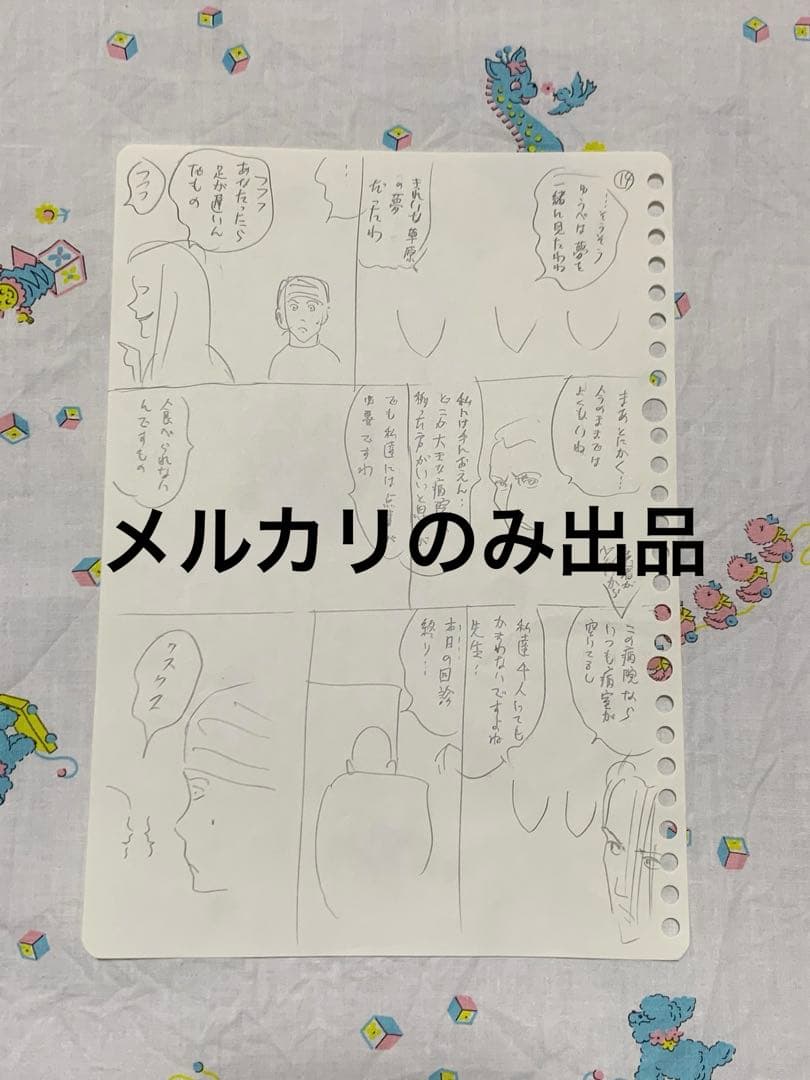 ⑭
…そうそう
ゆうべは夢を
一緒に見たわね
きれいな草原
の夢
だったわ
…
フフフ
あなたったら
足が遅いん
だもの
フフフ
まあとにかく…
今のままでは
よくもいね
私には手におえん…
どこか大きな病院
移った方がいいと思
が
でも私達には点
必要ですわ
食べられない
んですもの
メルカリのみ出品
この病院なら
いつも病室が
空いてるし
私達4人にても
かまわないですよね
先生…
…
本日の回診
終り…
クスクス